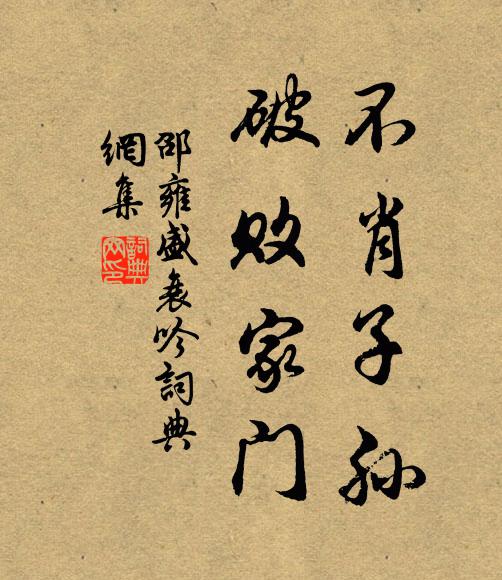 不肖子孙
破败家门
邵雍盛衰吟詞典
網集
詞典
网印